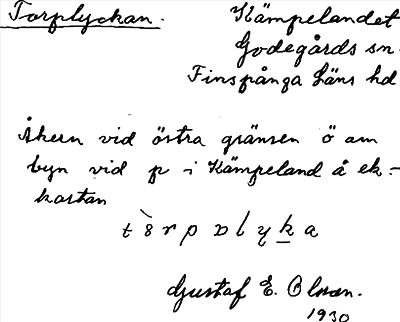 Torplyckan.
Kämpelandet
Godegårds sn.
Finspånga läns hd
Åkern vid östra gränsen ö om
byn vid p i Kämpeland å ek-
kartan
Gustaf E. Olsson.
1930